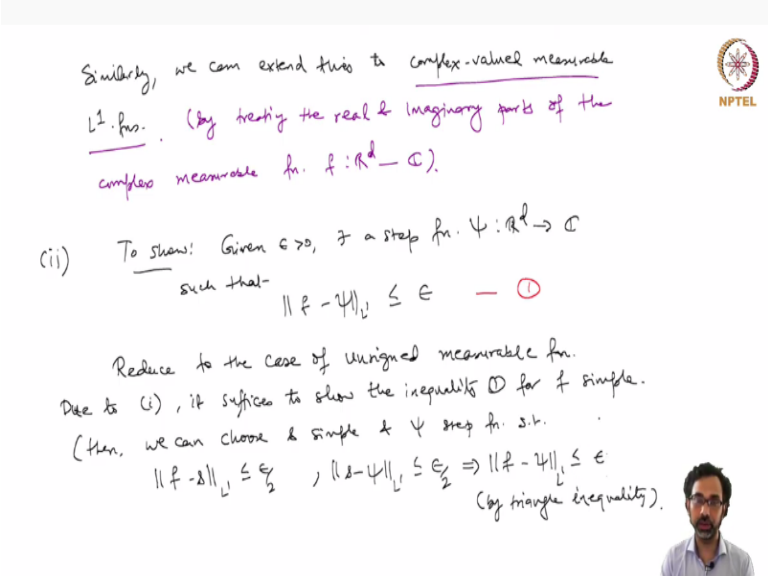 Similarly, we can extend this to complex-valued measurable
L¹-fns. (by treating the real & Imaginary parts of the
complex measurable fn. f : ℝᵈ → ℂ).
NPTEL
(ii) To show: Given ε >0, ∃ a step fn. Ψ : ℝᵈ → ℂ
such that
||f - Ψ||_L¹ ≤ ε — ①
Reduce to the case of unsigned measurable fn.
Due to (i), it suffices to show the inequality ① for f simple.
(then, we can choose s simple & Ψ step fn. s.t.
||f - s||_L¹ ≤ ε/2 , ||s - Ψ||_L¹ ≤ ε/2 ⇒ ||f - Ψ||_L¹ ≤ ε
(by triangle inequality).